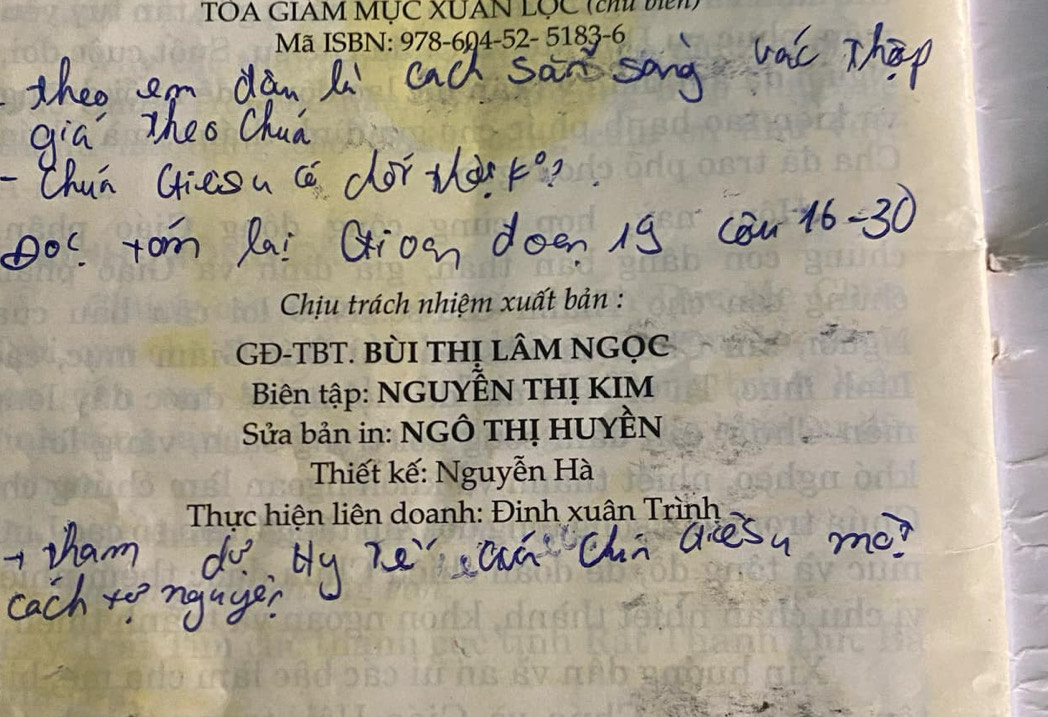 TÒA GIÁM MỤC XUÂN LỘC (chủ biên)
Mã ISBN: 978-604-52- 5183-6
- theo em dân là cach sẵn sàng vác thập
giá theo Chuá
- Chuá Giêsu có dới thờ k°?
Đọc tóm lại Gioan đoạn 19 câu 16-30
Chịu trách nhiệm xuất bản :
GĐ-TBT. BÙI THỊ LÂM NGỌC
Biên tập: NGUYỄN THỊ KIM
Sửa bản in: NGÔ THỊ HUYỀN
Thiết kế: Nguyễn Hà
Thực hiện liên doanh: Đinh xuân Trình
→ tham dự Hy Tế của Chúa Giêsu một
cách tự nguyện